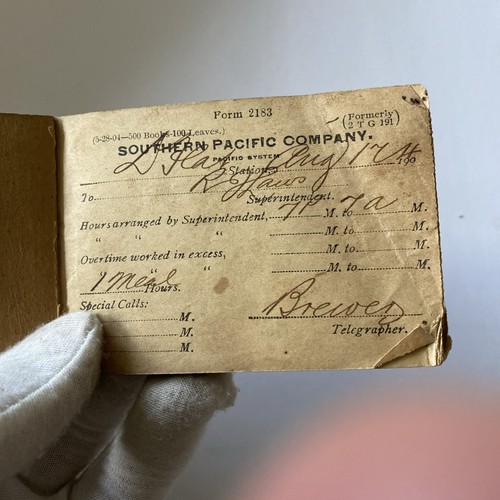 Form 2183
(5-28-04—500 Books-100 Leaves.)
(Formerly
2 T G 191)
SOUTHERN PACIFIC COMPANY.
PACIFIC SYSTEM
Station, Aug 17 190
To Superintendent.
Hours arranged by Superintendent, 7P M. to 7a M.
" " " M. to M.
Overtime worked in excess, M. to M.
" " M. to M.
1 Meal Hours.
Special Calls:
M. Brewer
M. Telegrapher.
M.